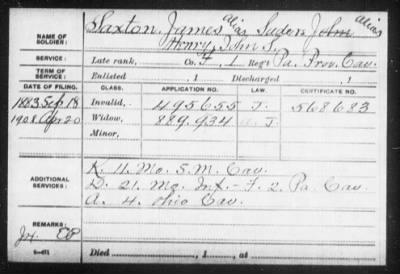 NAME OF SOLDIER: Saxton, James alias Suder, John alias
Henry, John S.
SERVICE: Late rank, Co. F, 1 Reg't Pa. Prov. Cav.
TERM OF SERVICE: Enlisted , 1 Discharged , 1
DATE OF FILING. CLASS. APPLICATION NO. LAW. CERTIFICATE NO.
1883 Sep 18 Invalid, 495655 J. 568683
1908 Apr 20 Widow, 889.934 J.
Minor,
ADDITIONAL SERVICES: K. 11. Mo. S. M. Cav.
D. 21. Mo. Inf. - F. 2. Pa. Cav.
A. 4. Ohio Cav.
REMARKS:
Died , 1 , at